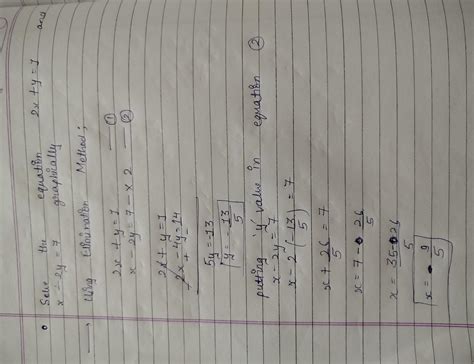 • Solve the equation 2x + y = 1 and
x - 2y = 7 graphically
→ Using Elimination Method;
2x + y = 1 — ①
x - 2y = 7 - x 2 — ②
2x + y = 1
2x - 4y = 14
- +
5y = -13
y = -13/5
putting 'y' value in equation ②
x - 2y = 7
x - 2(-13/5) = 7
x + 26/5 = 7
x = 7 - 26/5
x = 35 - 26/5
x = 9/5